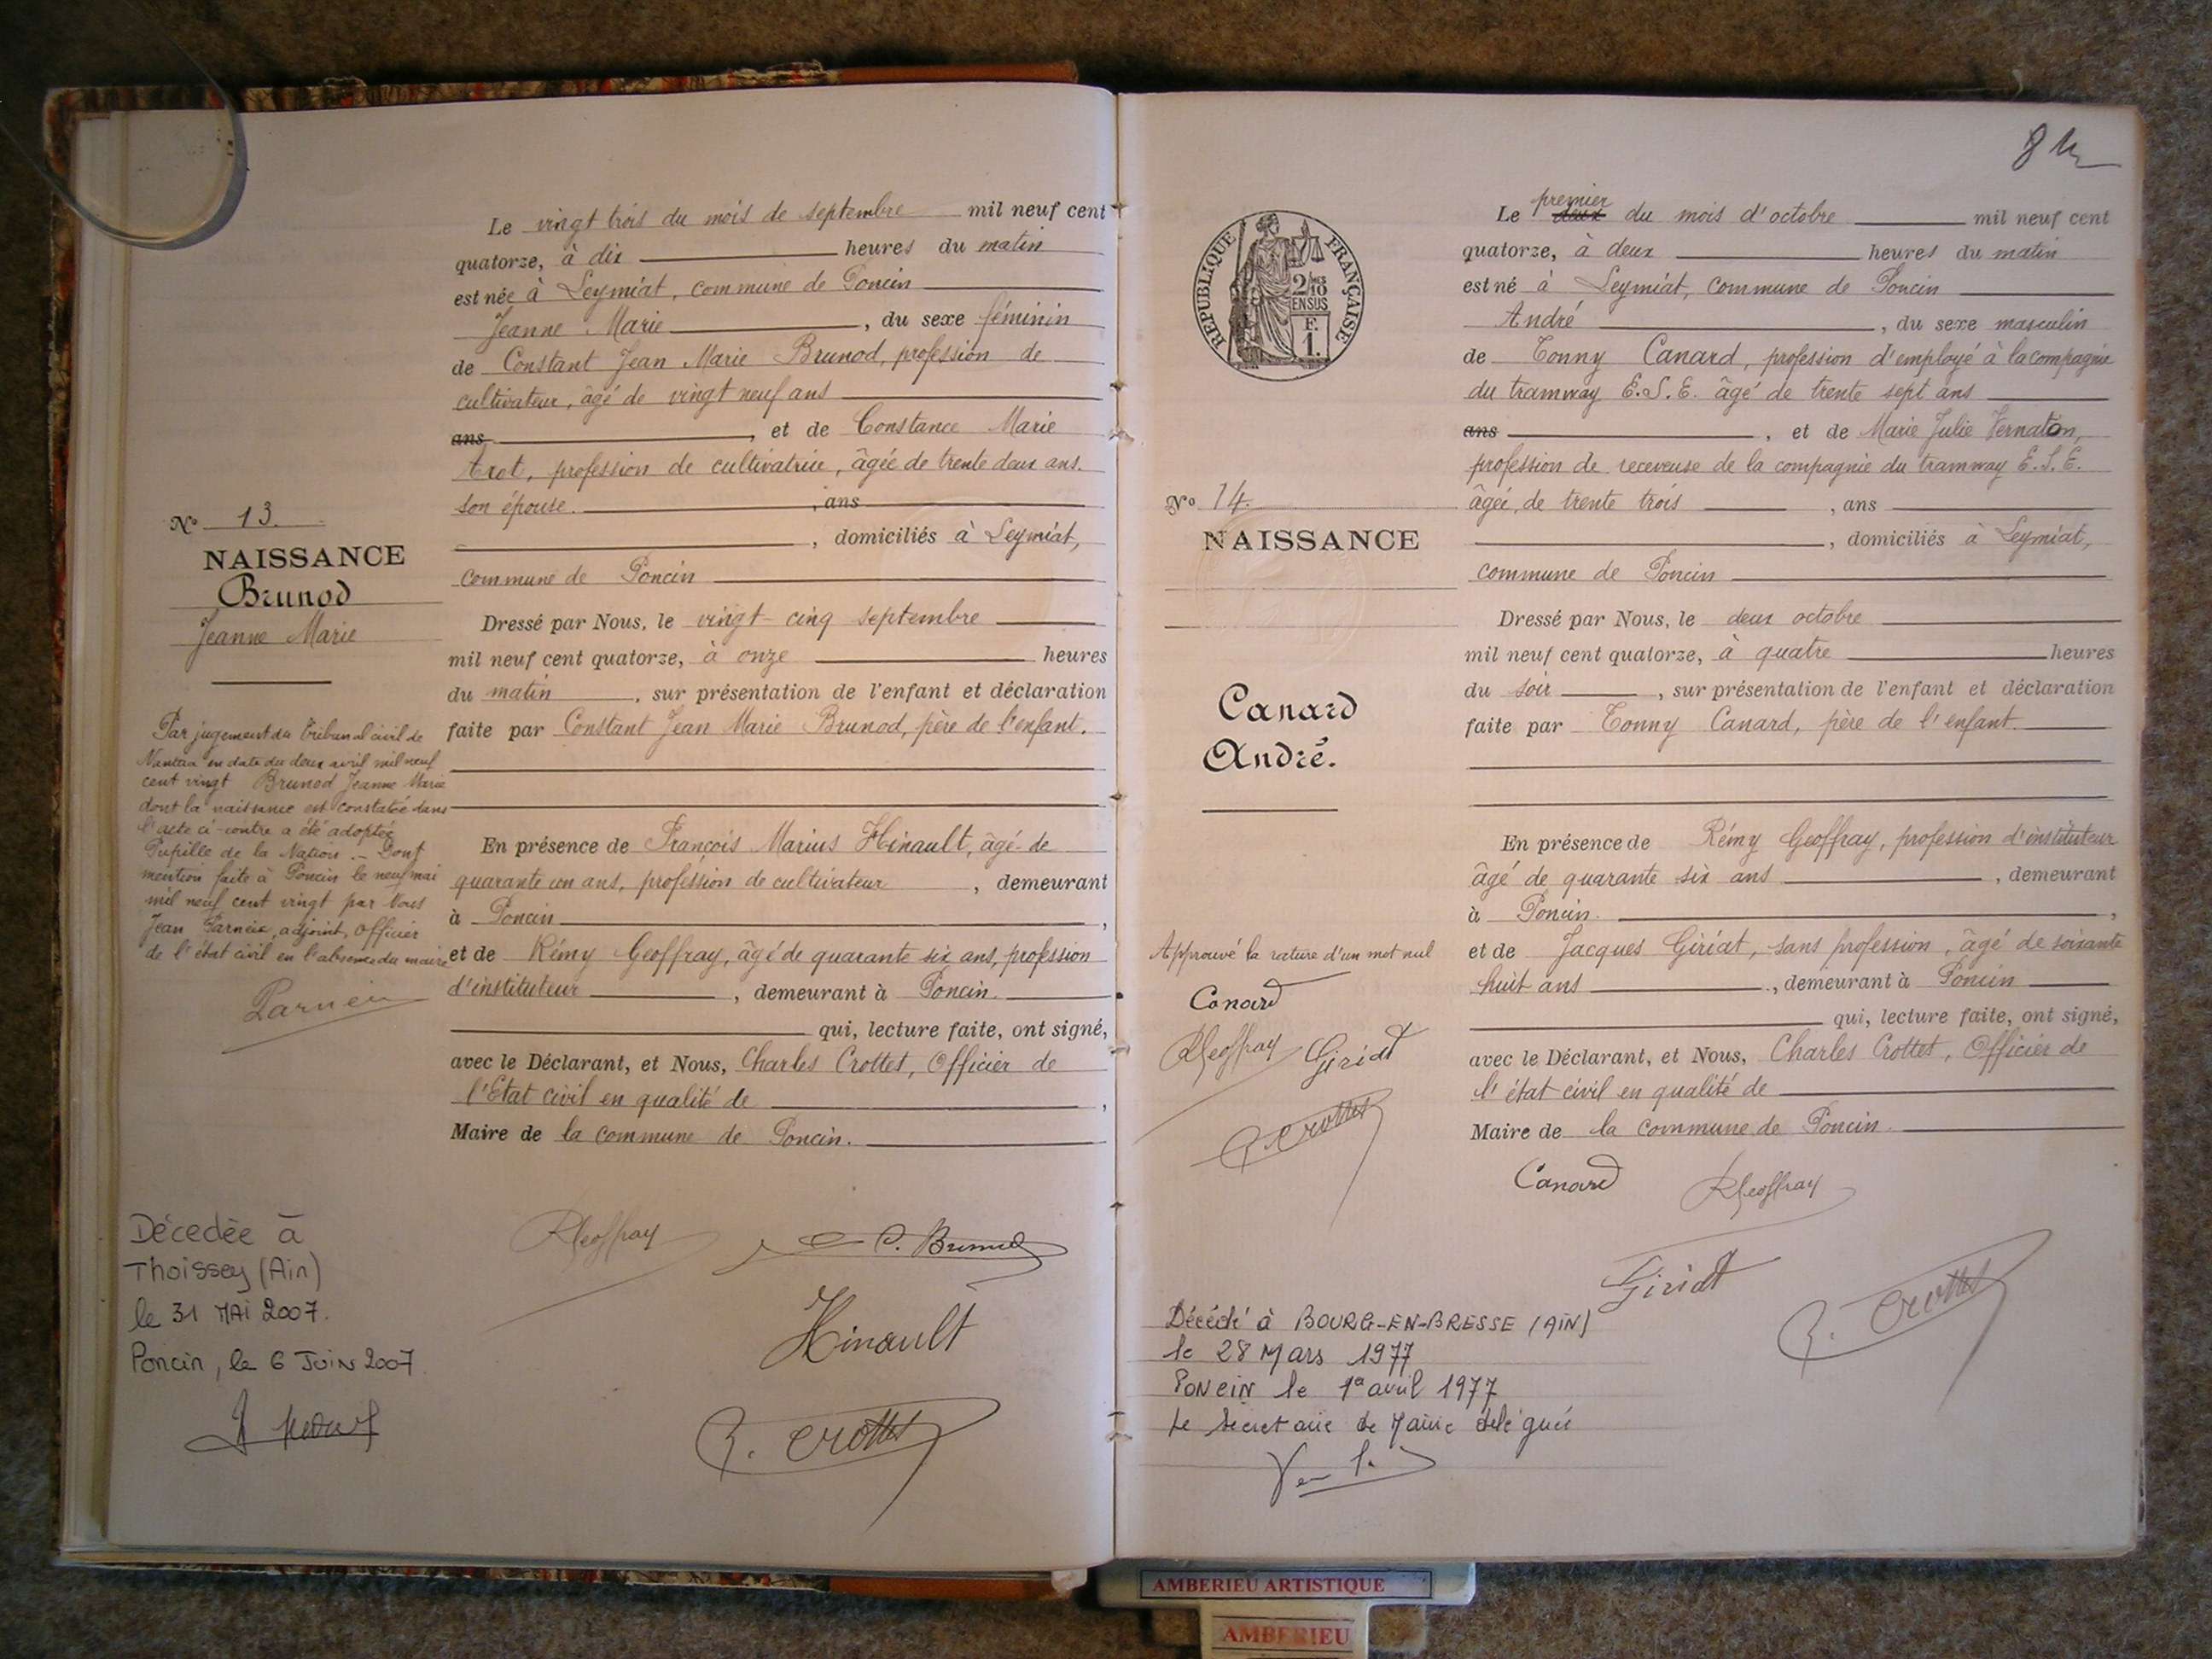 Le vingt trois du mois de septembre mil neuf cent
quatorze, à dix heures du matin
est née à Leymiat, commune de Poncin
Jeanne Marie, du sexe féminin
de Constant Jean Marie Brunod, profession de
cultivateur, âgé de vingt neuf ans
ans, et de Constance Marie
profession de cultivatrice, âgée de trente deux ans.
son épouse. , ans
, domiciliés à Leymiat,
commune de Poncin
Dressé par Nous, le vingt cinq septembre
mil neuf cent quatorze, à onze heures
du matin, sur présentation de l'enfant et déclaration
faite par Constant Jean Marie Brunod, père de l'enfant.
En présence de François Marius Hinault, âgé de
quarante un ans, profession de cultivateur, demeurant
à Poncin,
et de Rémy Geoffray, âgé de quarante six ans, profession
d'instituteur, demeurant à Poncin.
qui, lecture faite, ont signé,
avec le Déclarant, et Nous, Charles Crottet, Officier de
l'Etat civil en qualité de ,
Maire de la commune de Poncin.
RGeoffray
C. Brunod
Hinault
Crottet
No 13.
NAISSANCE
Brunod
Jeanne Marie
Par jugement du tribunal civil de
Nantua en date du deux avril mil neuf
cent vingt Brunod Jeanne Marie
dont la naissance est constatée dans
l'acte ci-contre a été adoptée
Pupille de la Nation. – Dont
mention faite à Poncin le neuf mai
mil neuf cent vingt par Nous
Jean Parneix, adjoint, Officier
de l'état civil en l'absence du maire
Parneix
Décedée à
Thoissey (Ain)
le 31 MAI 2007.
Poncin, le 6 Juin 2007.
8
RÉPUBLIQUE FRANÇAISE
2/10
EN SUS
F.
1.
Le premier deux du mois d'octobre mil neuf cent
quatorze, à deux heures du matin
est né à Leymiat, commune de Poncin
André, du sexe masculin
de Tonny Canard, profession d'employé à la compagnie
du tramway E.S.E. âgé de trente sept ans
ans, et de Marie Julie Vernaton,
profession de receveuse de la compagnie du tramway E.S.E.
âgée de trente trois, ans
, domiciliés à Leymiat,
commune de Poncin
Dressé par Nous, le deux octobre
mil neuf cent quatorze, à quatre heures
du soir, sur présentation de l'enfant et déclaration
faite par Tonny Canard, père de l'enfant.
En présence de Rémy Geoffray, profession d'instituteur
âgé de quarante six ans, demeurant
à Poncin. ,
et de Jacques Giriat, sans profession, âgé de soixante
huit ans, demeurant à Poncin
qui, lecture faite, ont signé,
avec le Déclarant, et Nous, Charles Crottet, Officier de
l'état civil en qualité de
Maire de la commune de Poncin.
Canard RGeoffray
Giriat
Crottet
No 14.
NAISSANCE
Canard
André.
Approuvé la rature d'un mot nul
Canard
RGeoffray Giriat
Crottet
Décédé à BOURG-EN-BRESSE (AIN)
le 28 Mars 1977
PONCIN le 1er avril 1977
Le Secretaire de Mairie délégué
AMBERIEU ARTISTIQUE
AMBERIEU